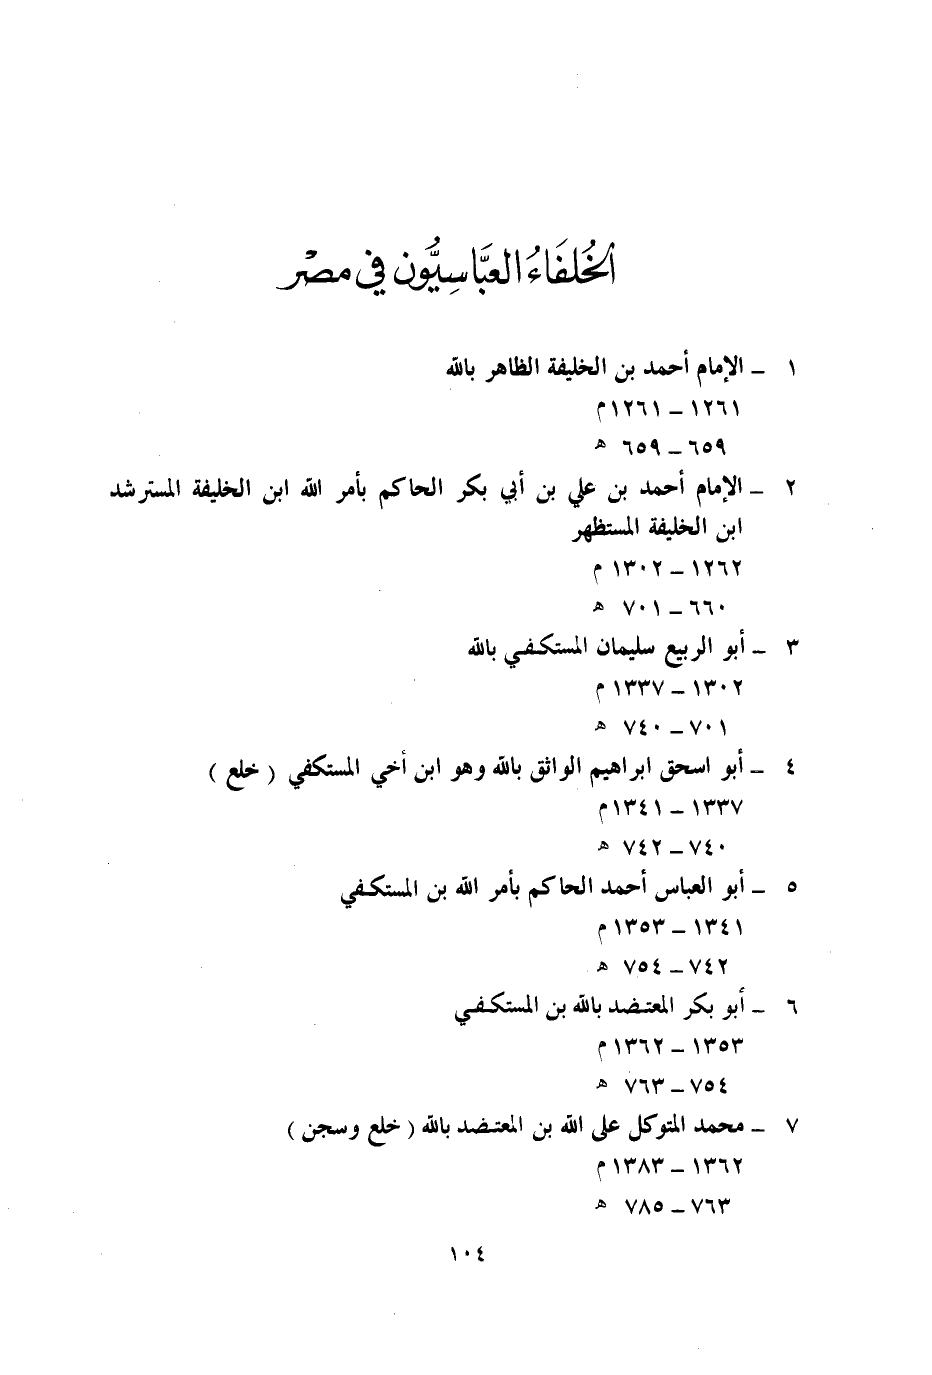 الخُلفَاءُ العبَّاسِيُّون في مصْر
١ – الإمام أحمد بن الخليفة الظاهر بالله
١٢٦١ – ١٢٦١م
٦٥٩ – ٦٥٩ ه
٢ – الإمام أحمد بن علي بن أبي بكر الحاكم بأمر الله ابن الخليفة المسترشد
ابن الخليفة المستظهر
١٢٦٢ – ١٣٠٢ م
٦٦٠ – ٧٠١ ه
٣ – أبو الربيع سليمان المستكفي بالله
١٣٠٢ – ١٣٣٧ م
٧٠١ – ٧٤٠ ه
٤ – أبو اسحق ابراهيم الواثق بالله وهو ابن أخي المستكفي ( خلع )
١٣٣٧ – ١٣٤١م
٧٤٠ – ٧٤٢ ه
٥ – أبو العباس أحمد الحاكم بأمر الله بن المستكفي
١٣٤١ – ١٣٥٣ م
٧٤٢ – ٧٥٤ ه
٦ – أبو بكر المعتضد بالله بن المستكفي
١٣٥٣ – ١٣٦٢ م
٧٥٤ – ٧٦٣ ه
٧ – محمد المتوكل على الله بن المعتضد بالله ( خلع وسجن )
١٣٦٢ – ١٣٨٣ م
٧٦٣ – ٧٨٥ ه
١٠٤